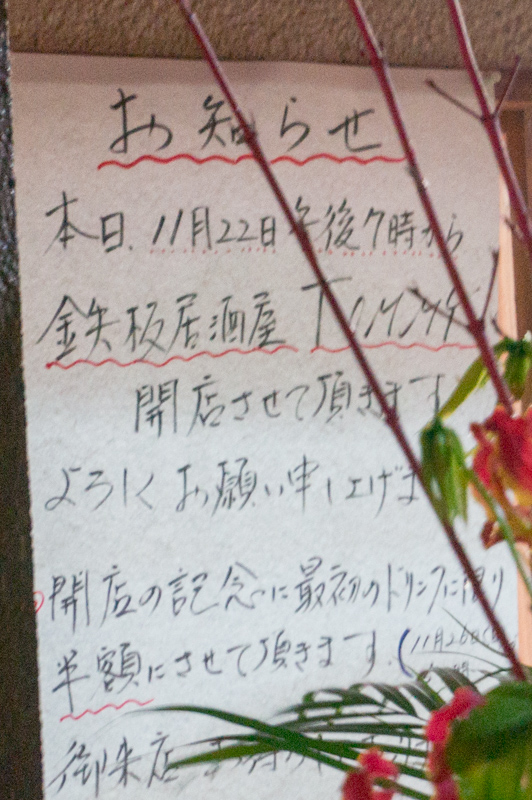 お知らせ
本日、11月22日 午後7時から
鉄板居酒屋
開店させて頂きます
よろしくお願い申し上げま
開店の記念に最初のドリンクに限り
半額にさせて頂きます。(11月26日
御来店